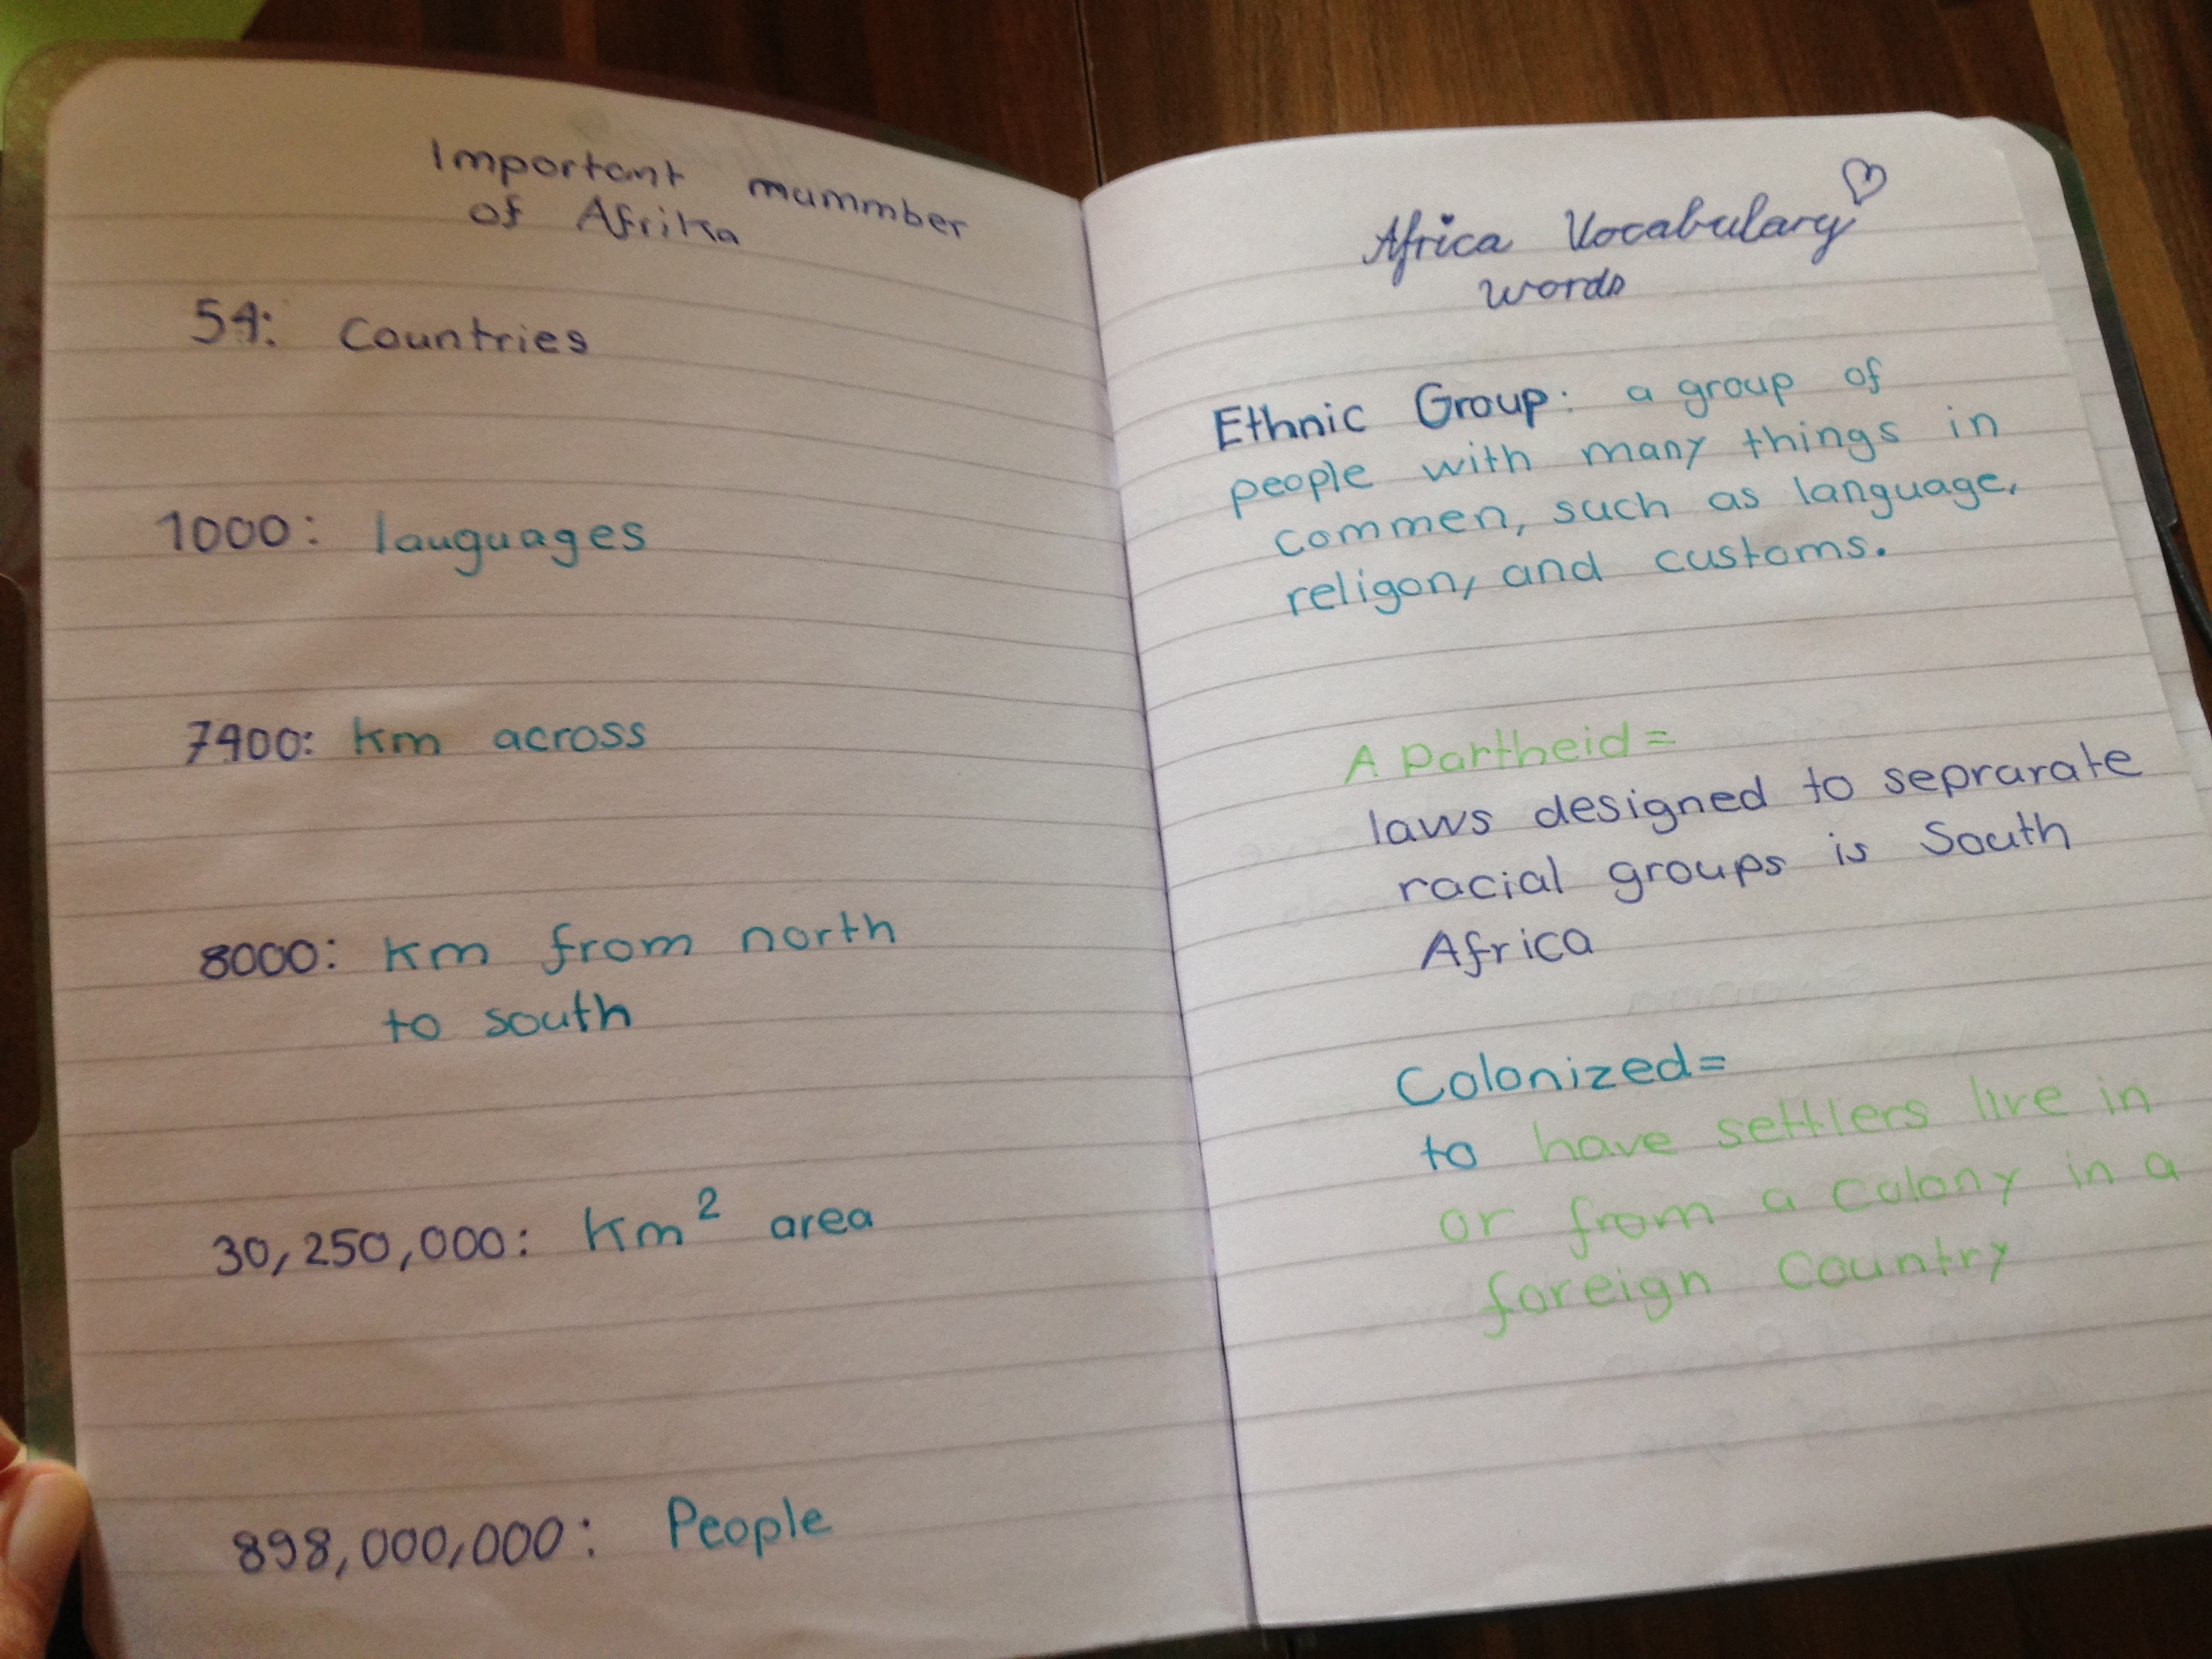 Important mummber
of Afrika
54: Countries
1000: lauguages
7400: km across
8000: km from north
to south
30,250,000: km² area
898,000,000: People
Africa Vocabulary
words
Ethnic Group: a group of
people with many things in
commen, such as language,
religon, and customs.
A partheid=
laws designed to seprarate
racial groups is South
Africa
Colonized=
to have settlers live in
or from a colony in a
foreign Country